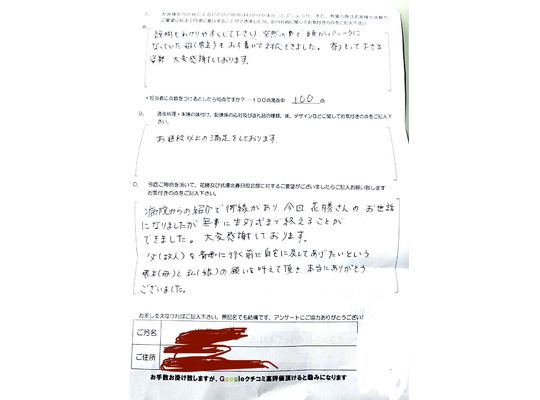 説明もわかりやすくして下さり 突然の事で頭がパニックに
なっていた母(喪主)もお手書いて対応してきました。寄りそって下さる
姿勢 大変感謝しております。
*担当者に点数をつけるとしたら何点ですか? -100点満点中 100 点
9. 通夜料理・本膳の味付け、配膳係の応対及び返礼品の種類、味、デザインなどに関してお気付きの点をご記入下さい。
お値段以上の満足をしております
今回ご葬儀を頂いて、花勝及び式場北春日部会館に対するご要望がございましたらご記入お願い致します
お気付きの点をご記入下さい。
病院からの紹介で何縁があり 今回 花勝さんの お世話
になりましたが 無事に告別式まで終えることが
できました。大変感謝しております。
父(故人)を斎場に行く前に自宅に戻してあげたいという
喪主(母)と私(娘)の願いを叶えて頂き 本当にありがとう
ございました。
お差し支えなければご記入下さい。無記名でも結構です、アンケートにご協力ありがとうござい
ご芳名
ご住所
お手数お掛け致しますが、Googleクチコミ高評価頂けると励みになります